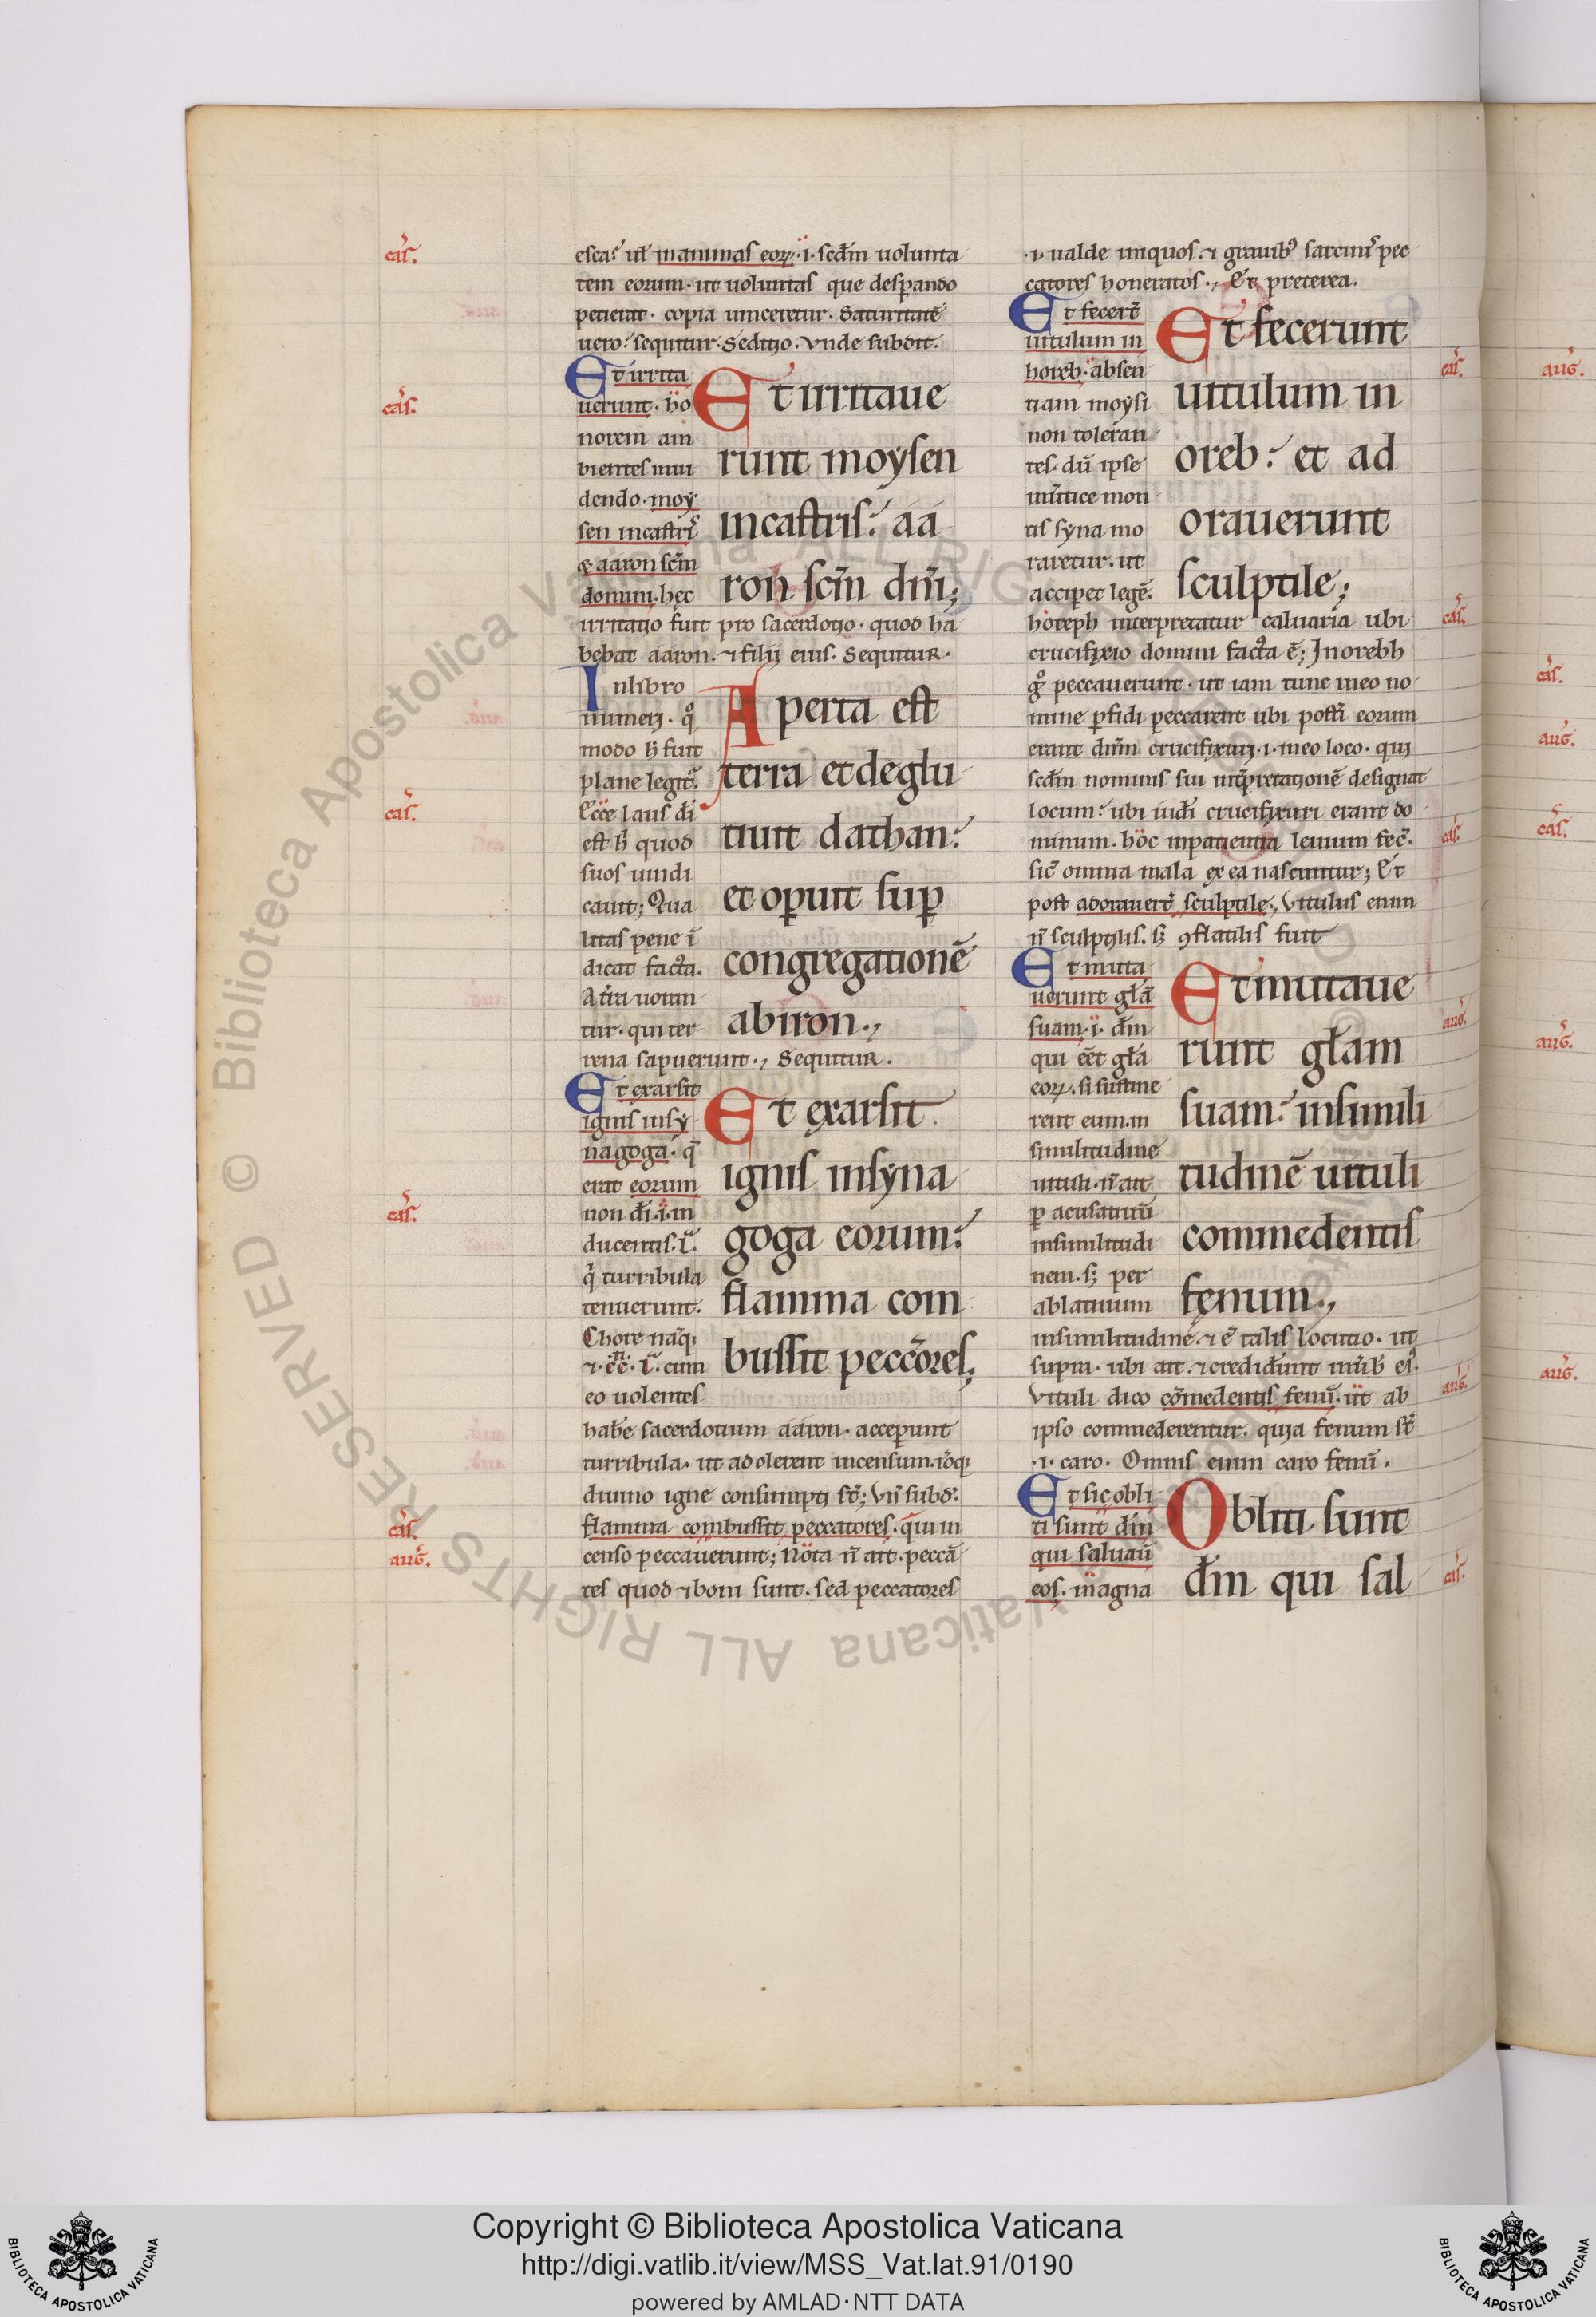 cas̉.
escas̉ ul̉ mannnas eoꝝ·i·scd̄m uolunta
tem eorum·ut uoluntas que desp̄ando
petierat· copia uinceretur. Saturitatē
uero.̉ sequitur. Seditio. Vnde subdit.
Et irrita
cas̉.
uerunt. ho
norem am
bientes inui
dendo. moy
sen incastri᷒
⁊ aaron sc̄m
domini. hec
Et irritaue
runt moysen
incastris.̉ aa
ron sc̄m dn̄i;
irritatio fuit pro sacerdotio· quod ha
bebat aaron. ⁊ filii eius. Sequitur.
In libro
numeri. qͦ
modo h̄ sunt
plane legitᷣ.
cas̉.
Ecce laus di̅
est h̄ quod
suos uindi
cauit; Qua
litas pene ī
dicat facta.
A tr̄a uoran
tur. qui ter
Aperta est
terra et deglu
tiuit dathan.̉
et op̄uit sup̄
congregationē
abiron.,
rena sapuerunt., Sequitur.
Et exarsit
ignis insy
nagoga. q̄
erat eorum
cas̉.
non di̅.i.in
ducentis.
q̄ turribula
tenuerunt.
Chore naq̄;
cum
eo uolentes
Et exarsit
ignis insyna
goga eorum.̉
flamma com
bussit pecc̄ores;
hab̄e sacerdotium aaron. accep̄unt
turribula. ut adolerent incensum.
diuino igne consumpti st̄; Vn̄ subd̉.
cas̉.
flamma combussit peccatores. qui in
aug̉.
censo peccauerunt; Nota n̄ ait. peccā
tes quod ⁊ boni sunt. sed peccatores
·i· ualde iniquos. ⁊ grauib᷒ sarcinis pec
catores honeratos., Et preterea.
Et fecer̄t
uitulum in
cas̉.
horeb. absen
tiam moysi
non toleran
tes. dū ipse
in uertice mon
tis syna mo
raretur. ut
accip̄et legē.
Et fecerunt
uitulum in
oreb.̉ et ad
orauerunt
sculptile;
cas̉.
horeph interpretatur caluaria ubi
crucifixio domini facta ē; In orebh
gͦ peccauerunt. ut iam tunc ineo no
mine p̄fidi peccarent ubi post̄i eorum
erant dn̄m crucifixuri.i. ineo loco. qui
scd̄m nominis sui int̄pretationē designat
locum.̉ ubi iud̄i crucifixuri erant do
cas̉.
minum. hoc inpatientia leuium fec̄.
sic̄ omnia mala ex ea nascuntur; Et
post adorauer̄t sculptile., Vitulus enim
n̄ sculptilis. sꝫ ꝯflatilis fuit
Et muta
uerunt gl̄ā
aug̉.
suam.i. dm̄
qui eēt gl̄a
eoꝝ. si sustine
rent eum. in
similitudine
uituli. n̄ ait
p̄ acusatiuū
insimilitudi
nem. sꝫ per
ablatiuum
Et mutaue
runt gl̄am
suam.̉ insimili
tudinē uituli
commedentis
fenum.,
insimilitudine. ⁊ ē talis locutio. ut
supra. ubi ait. ⁊ crediderunt in uerb̄ ei᷒.
aug̉.
Vituli dico cōmedentis fenū. ut ab
ipso commederentur. quia fenum st̄
·i· caro. Omnis enim caro fenū.
Et sic obli
ti sunt dm̄
qui saluaū
cas̉.
eos. magna
Obliti sunt
dm̄ qui sal
aug̉.
cas̉.
aug̉.
cas̉.
aug̉.
aug̉.
© Biblioteca Apostolica Vaticana ALL RIGHTS RESERVED
Copyright © Biblioteca Apostolica Vaticana
http://digi.vatlib.it/view/MSS_Vat.lat.91/0190
powered by AMLAD·NTT DATA
BIBLIOTECA APOSTOLICA VATICANA
BIBLIOTECA APOSTOLICA VATICANA